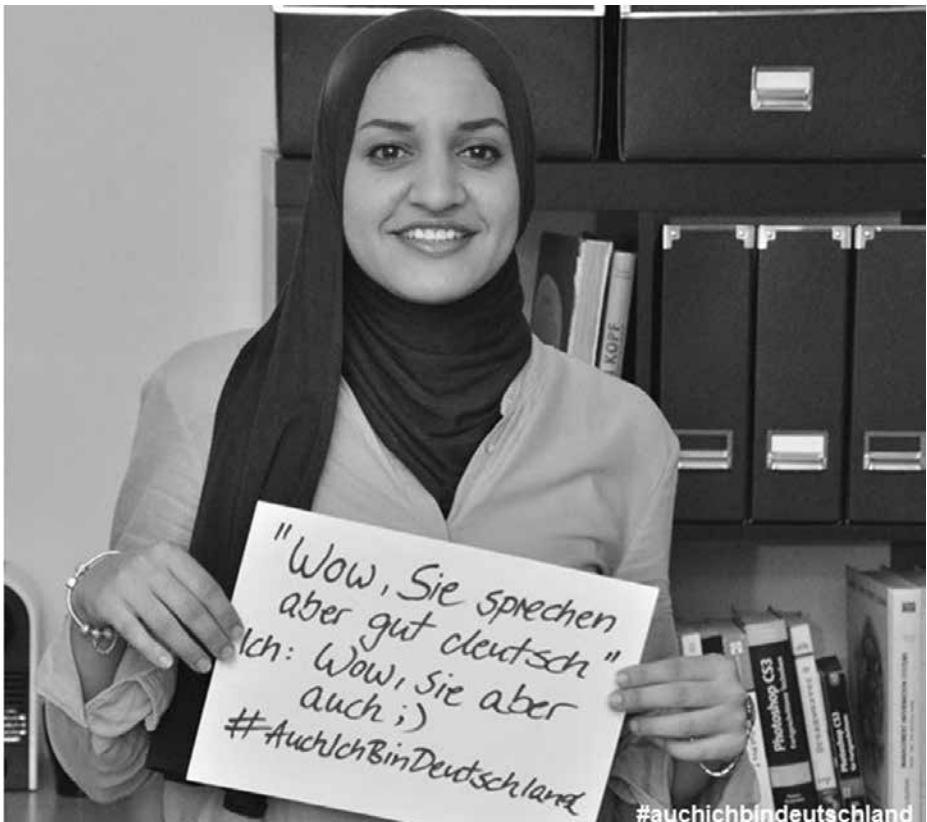 "Wow, Sie sprechen
aber gut deutsch"
Ich: Wow, sie aber
auch ;)
#AuchIchBinDeutschland
KOPF
Photoshop CS3
Photoshop CS3
#auchichbindeutschland